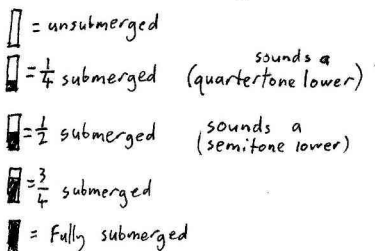 = unsubmerged
= 1/4 submerged (sounds a quartertone lower)
= 1/2 submerged (sounds a semitone lower)
= 3/4 submerged
= Fully submerged